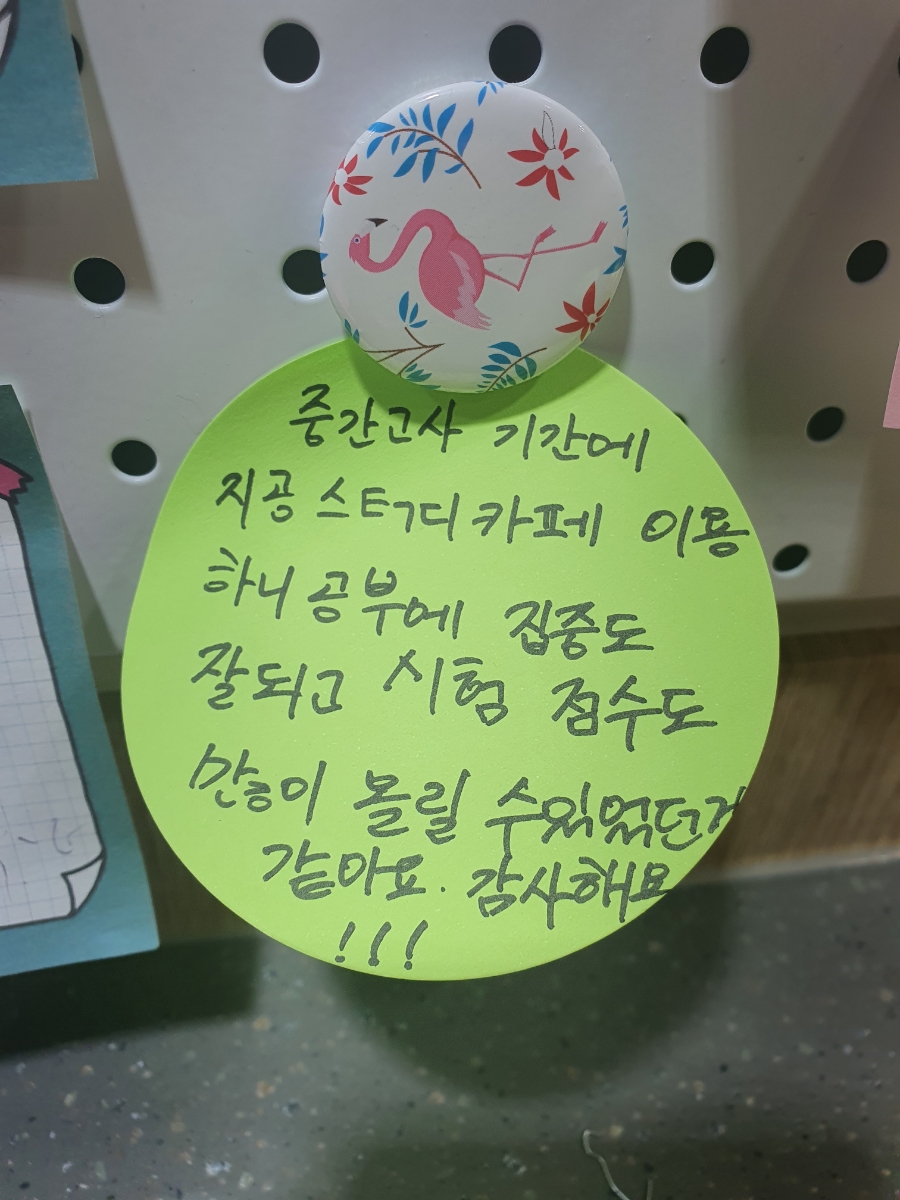 중간고사 기간에
지공 스터디 카페 이용
하니 공부에 집중도
잘되고 시험 점수도
만이 올릴 수있었던거
같아요. 감사해요
!!!